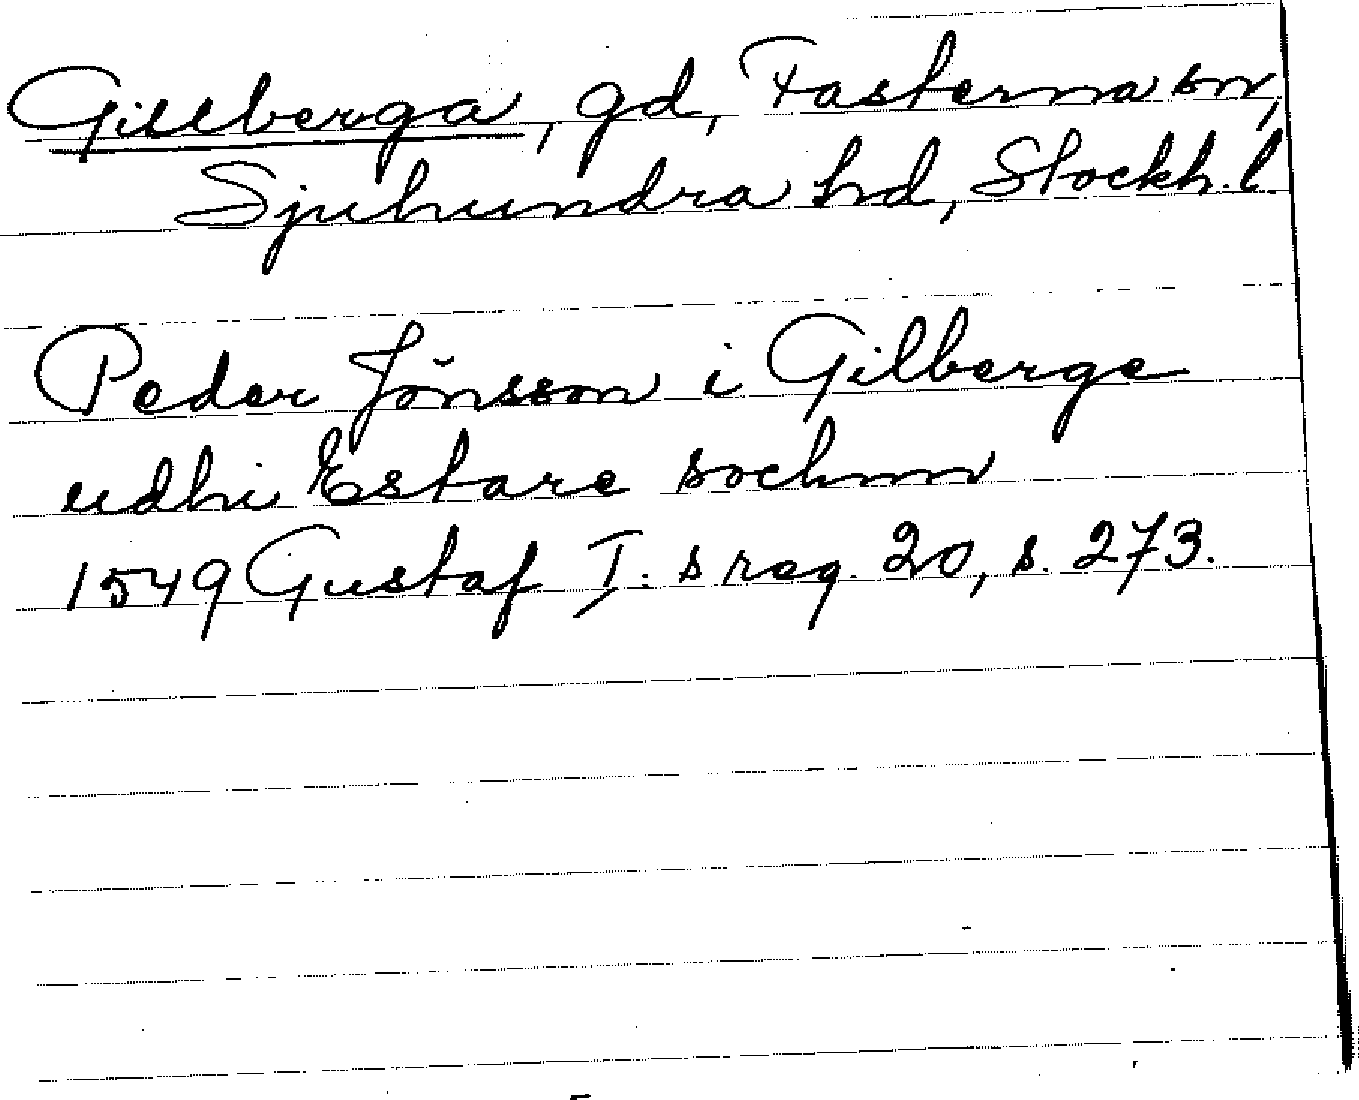 Gillberga, gd, Fasterna sn,
Sjuhundra hd, Stockh. l
Peder Jönsson i Gilberge
udhi Estare sochnn
1549 Gustaf I. s reg. 20, s. 273.